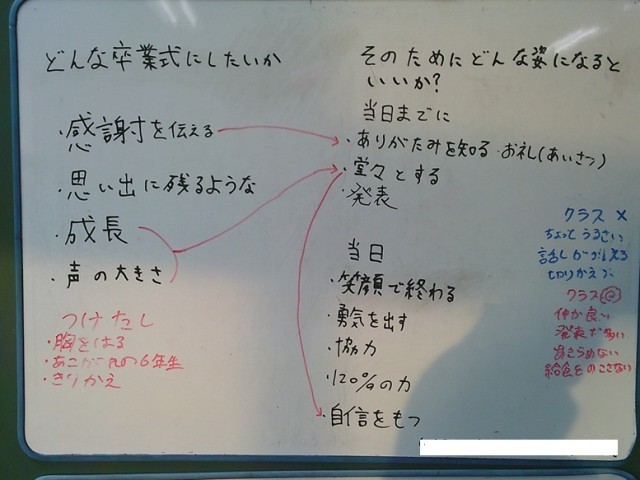 どんな卒業式にしたいか
・感謝を伝える
・思い出に残るような
・成長
・声の大きさ
つけたし
・胸をはる
・あこがれの6年生
・きりかえ
そのためにどんな姿になると
いいか?
当日までに
・ありがたみを知る・お礼(あいさつ)
・堂々とする
・発表
当日
・笑顔で終わる
・勇気を出す
・協力
・120%の力
・自信をもつ
クラス ×
ちょっとうるさい
切りかえ
クラス◎
仲が良い
発表が多い
あきらめない
給食をのこさない